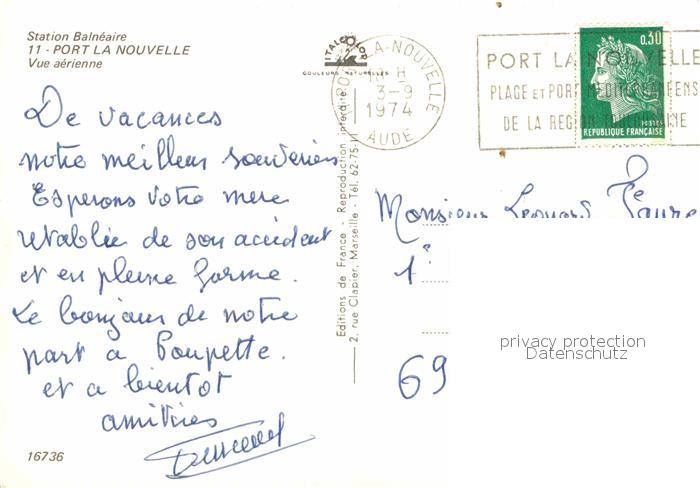 Station Balnéaire
11 - PORT LA NOUVELLE
Vue aérienne
De vacances
notre meilleur souvenir
Esperons votre mere
retablie de son accident
et en pleine forme.
Le bonjour de notre
part a Poupette.
et a bientot
amitiées
16736
ITALCOLOR
COULEURS NATURELLES
Editions de France - Reproduction interdite
2, rue Clapier, Marseille - Tél. 62-75-11
LA-NOUVELLE
H
3-9
1974
AUDE
PORT LA NOUVELLE
PLAGE ET PORT MEDITERRANEENS
DE LA REGION
0,30
POSTES
REPUBLIQUE FRANÇAISE
Monsieur Leonard
1
69
privacy protection
Datenschutz